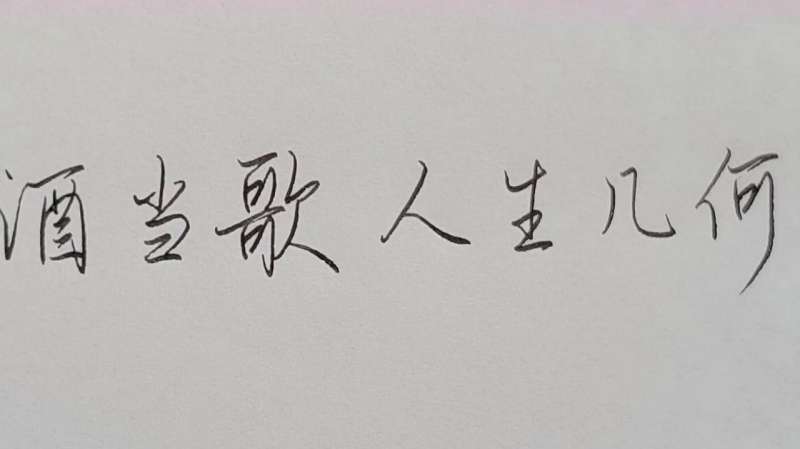 酒当歌人生几何